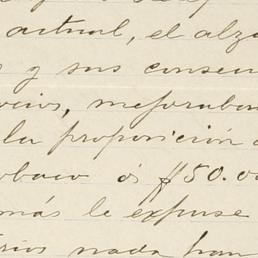 actual, el alza
y sus consecu
vicios, mejoraban
la proposición
obaco ó $50.00
más le expuse
rios nada han